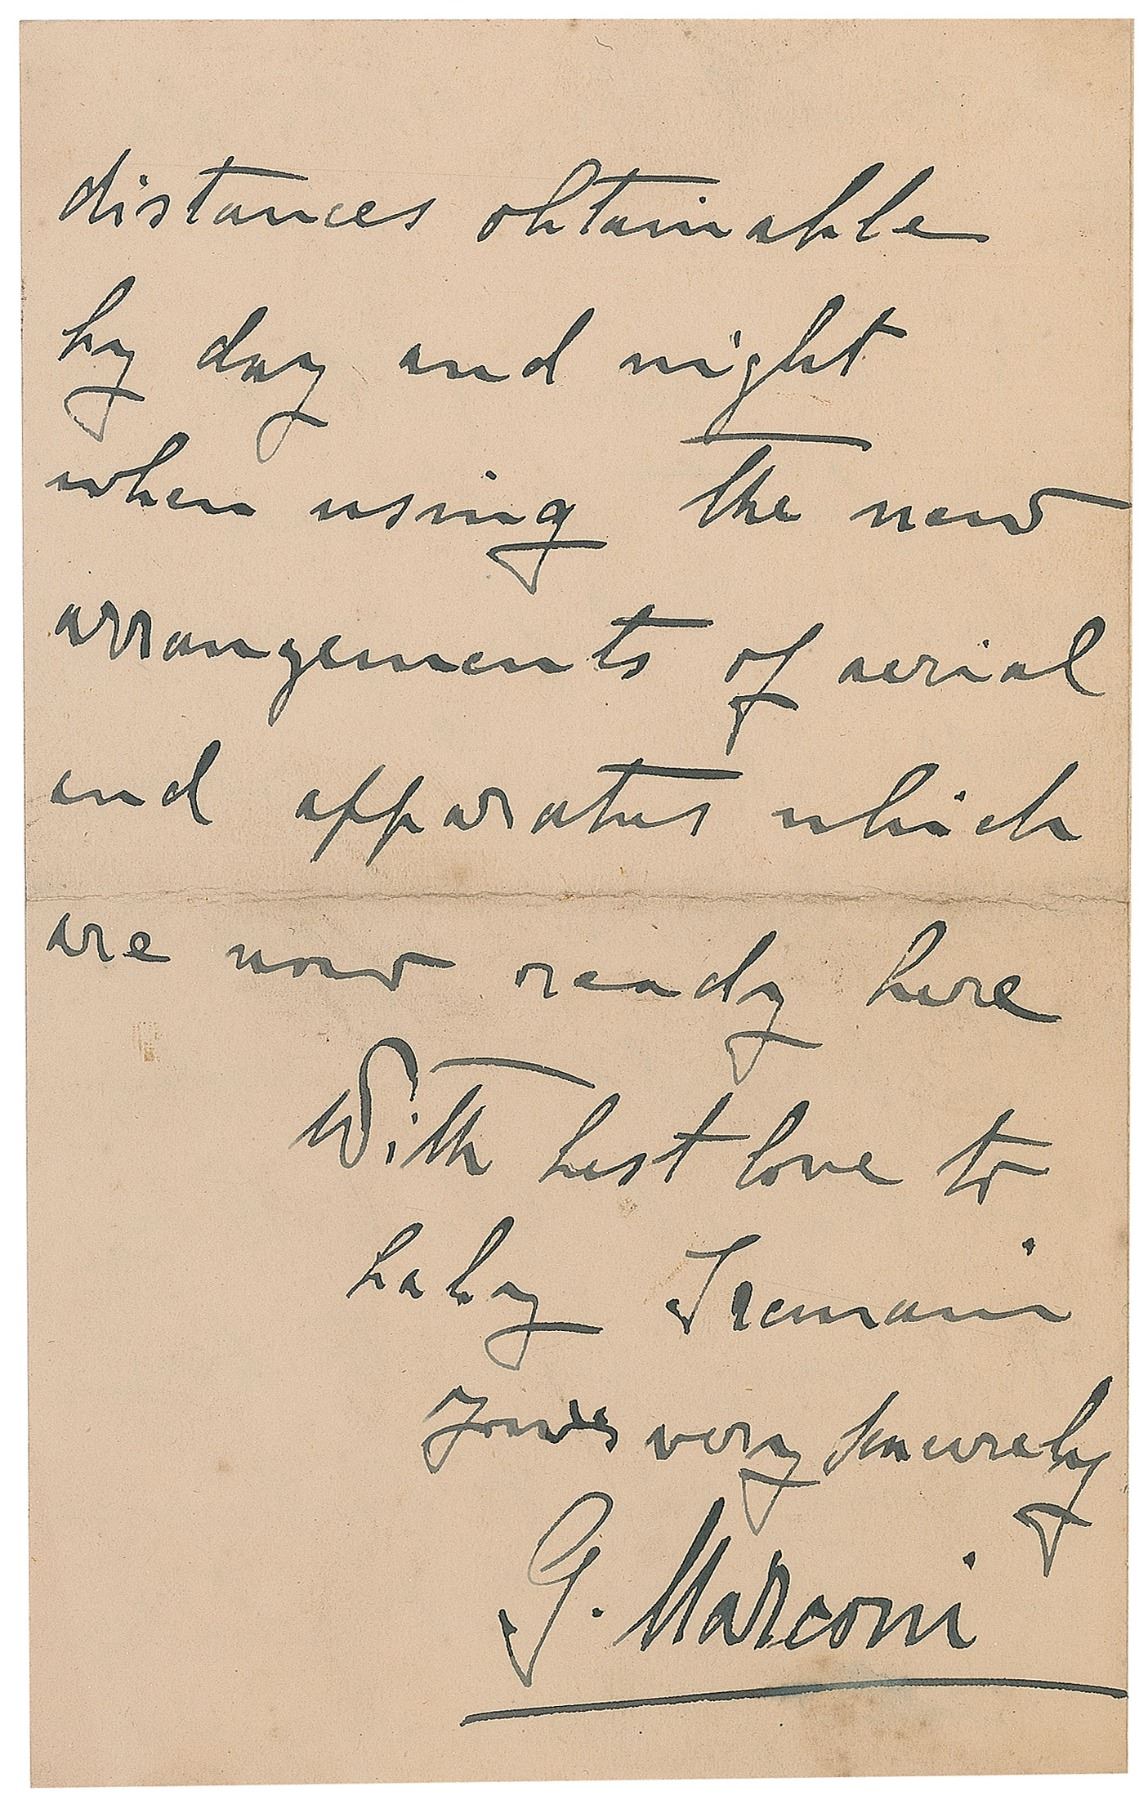 distances obtainable
by day and night
when using the new
arrangements of aerial
and apparatus which
are now ready here
With best love to
baby I remain
yours very sincerely
G. Marconi